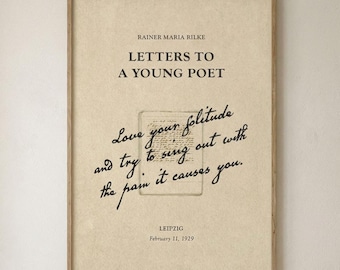 RAINER MARIA RILKE
LETTERS TO
A YOUNG POET
Love your solitude
and try to sing out with
the pain it causes you.
LEIPZIG
February 11, 1929